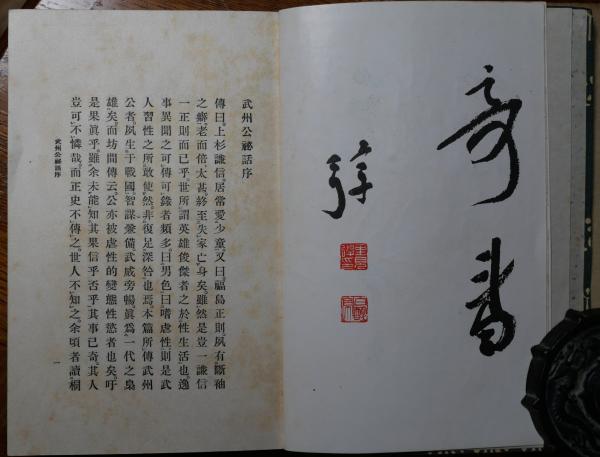 奇書
弴
武州公祕話序
傳曰。上杉謙信。居常愛少童。又曰福島正則。夙有斷袖
之癖。老而倍太甚。終至失家亡身矣。雖然是豈一謙信
一正則而已乎。世所謂英雄俊傑者之於性生活也。逸
事異聞之可傳可錄者類多。曰男色。曰嗜虐性。則是武
人習性之所敢使然。非復足深咎也焉。本篇所傳武州
公者。夙生于戰國。智謀兼備。武威旁暢。眞爲一代之梟
雄矣。而坊間傳云。公亦被虐性的變態性慾者也矣。吁
是果眞乎。雖余未能知其果信乎否乎。其事已奇。其人
豈可不憐哉。而正史不傳之。世人不知之。余頃者讀桐
武州公祕話序
一